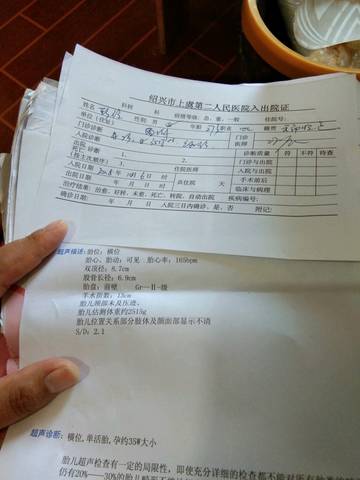 绍兴市上虞第二人民医院入出院证
姓名 科别 科 病情等级：急、重、一般 住院号：
单位（住址） 性别 女 年龄 27 职业 婚费
门诊诊断 门诊
入院诊断 医师
出院 诊断质量 符 不符 待查
死亡 诊断 1. 2. 门诊与出院
（按主次顺序） 1. 2. 入院与出院
入院日期 年 10月6日 时 住院医师 手术前后
出院日期 年 月 日 时 共住院 天 临床与病理
治疗结果：治愈、好转、未愈、死亡、转院、自动出院 疾病编号：
确诊日期： 年 月 日 入院三日内确诊，是、否 附记：
超声描述：胎位：横位
胎心、胎动：可见 胎心率：165bpm
双顶径：8.7cm
股骨长径：6.9cm
胎盘：前壁 Gr-Ⅱ-级
羊水指数：13cm
胎儿颈部未及压迹。
胎儿估测体重约2515g
胎儿位置关系部分肢体及颜面部显示不清
S/D：2.1
超声诊断：横位，单活胎，孕约35W大小
胎儿超声检查有一定的局限性，即使充分详细的检查都不能对所有胎
仍有20%——30%的胎儿畸形不